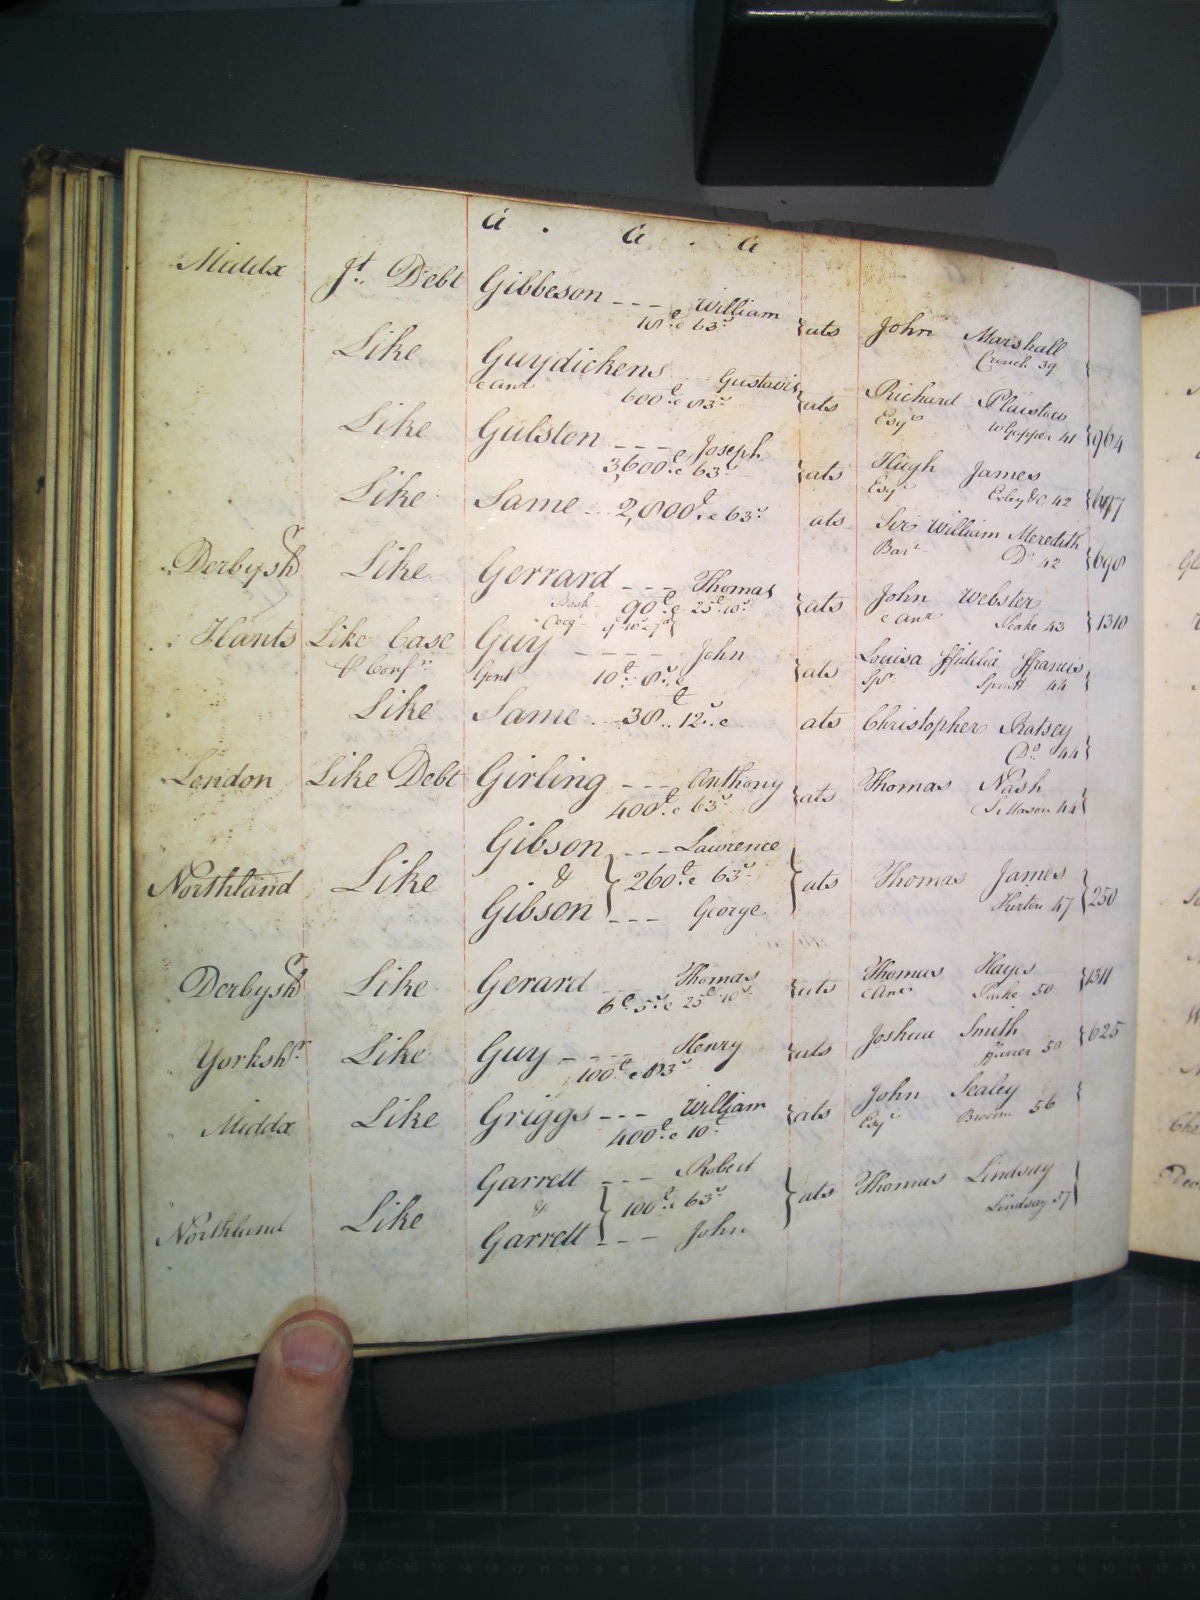 G . G . G
Middx Jt. Debt Gibbeson --- William
18£ & 63s } ats John Marshall
Crouch 39
Like Guydickens --- Gustavus
600£ & 83s } ats Richard Plaistow
Esqr 41 } 964
Like Gulston --- Joseph
3,600£ & 63s } ats Hugh James
Esqr Exley &c 42 } 697
Like Same -- 2,800£ & 63s ats Sir William Meredith
Bart Do 42 } 698
Derbysh Like Gerrard --- Thomas
90£ & 25£ 10s } ats John Webster
Peake 43 } 1310
Hants Like Case Guy ---- John
Gent 10£ 8s & } ats Louisa Ffidelia Ffrancis
Spr Spratt 44
Like Same -- 38£ 12s & ats Christopher Ratsey
Do 44
London Like Debt Girling --- Anthony
400£ & 63s } ats Thomas Nash
Mason 44
Gibson --- Lawrence
Northland Like & } 260£ & 63s } ats Thomas James
Gibson --- George Hurton 47 } 250
Derbysh Like Gerard --- Thomas
6£ 5s & 25£ 10s } ats Thomas Hayes
Peake 50 } 1311
Yorkshr Like Guy ---- Henry
100£ & 83s } ats Joshua Smith
50 } 625
Middx Like Griggs --- William
400£ & 10s } ats John Sealey
Esqr Broom 56
Garrett --- Robert
Northland Like & } 100£ & 63s } ats Thomas Lindsay
Garrett --- John Lindsay 57